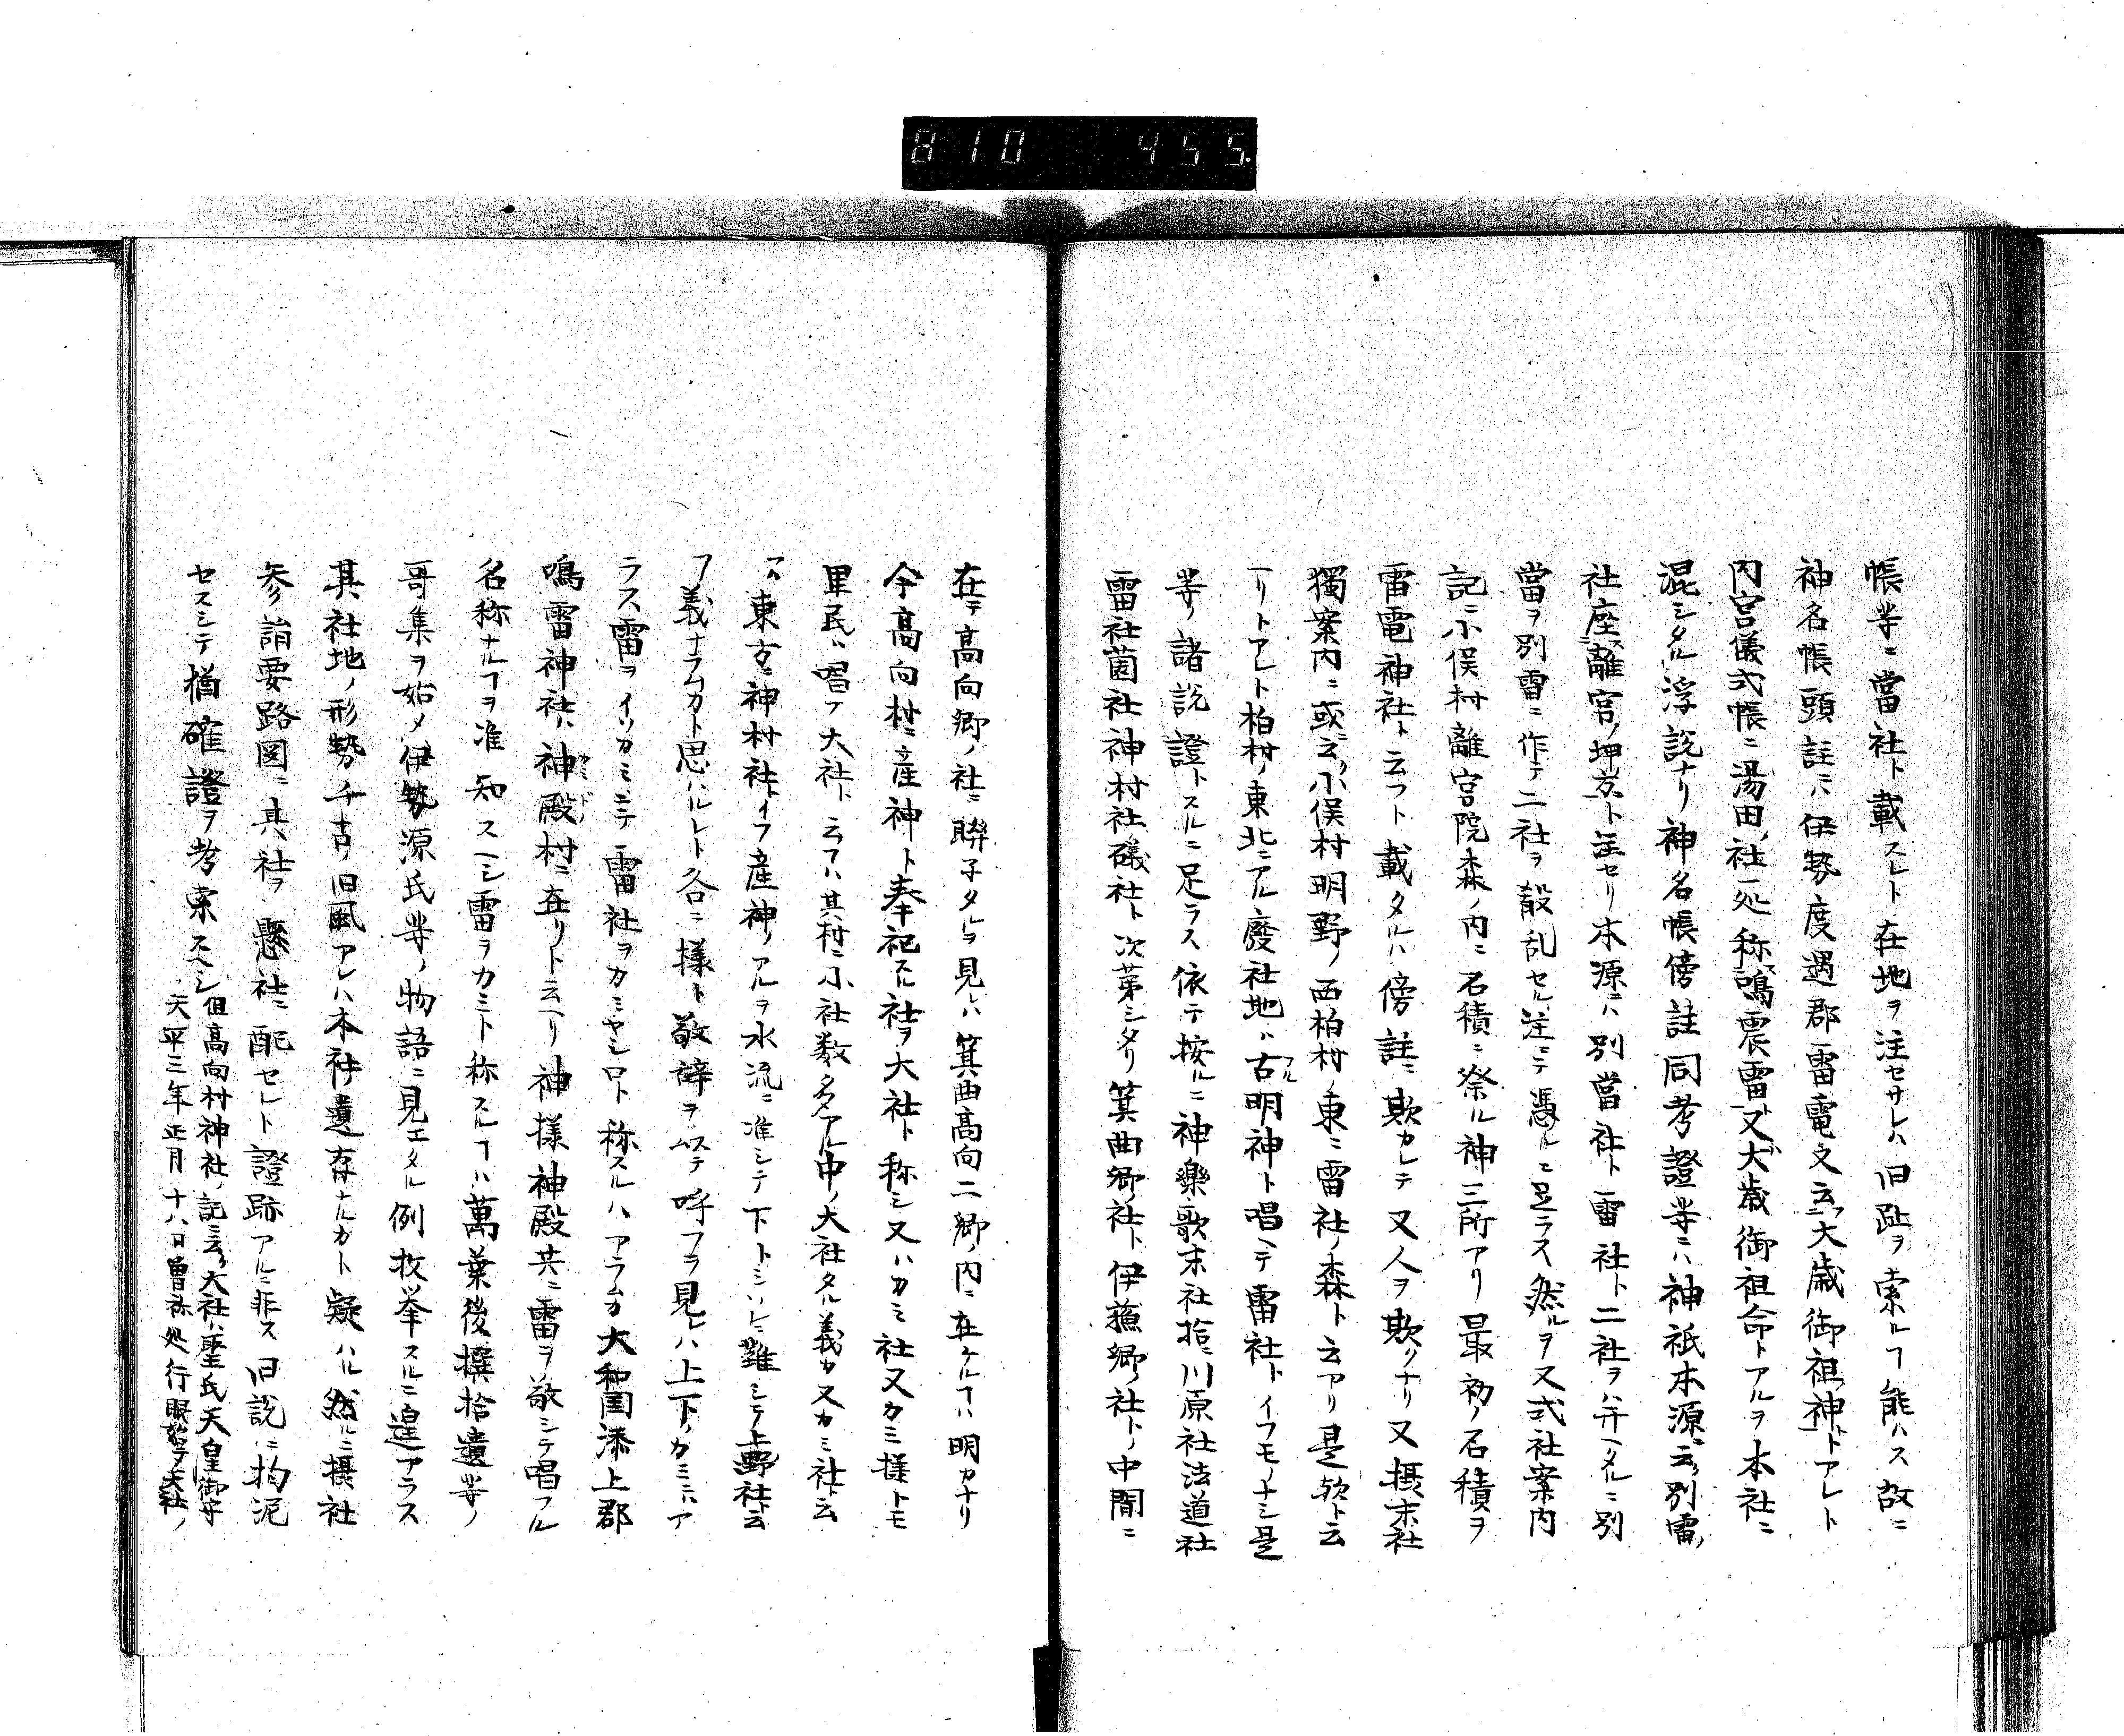 810 455
帳等ニ當社ト載スレト在地ヲ注セサレハ旧趾ヲ索ルヿ能ハス故ニ
神名帳頭註ニハ伊勢度遇郡雷電文云大歳御祖神トアレト
内宮儀式帳ニ湯田社一処称鳴震雷又大歳御祖命トアルヲ本社ニ
混シタル浮説ナリ神名帳傍註同考證等ニハ神祇本源云別雷ノ
社座離宮ノ坤岸ト注セリ本源ニハ別當社ト雷社ト二社ヲハ弁ヘタルニ別
當ヲ別雷ニ作テ二社ヲ殽乱セル注ニテ憑ルニ足ラス然ルヲ又式社案内
記ニ小俣村離宮院森ノ内ニ石積ニ祭ル神三所アリ最初ノ石積ヲ
雷電神社ト云フト載タルハ傍註ニ欺カレテ又人ヲ欺クナリ又摂末社
獨案内ニ或云小俣村明野ノ西柏村ノ東ニ雷社ノ森ト云アリ是歟ト云
ヘリトアレト柏村ノ東北ニアル廢社地ハ古明神ト唱ヘテ雷社トイフモノナシ是
等ノ諸説證トスルニ足ラス依テ按ルニ神樂歌末社拾ニ川原社法道社
雷社茵社神村社礒社ト次第シタリ箕曲郷社ト伊蘓郷社トノ中間ニ
在テ高向郷ノ社ニ聨子タルヲ見レハ箕曲高向二郷ノ内ニ在ケルヿハ明カナリ
今高向村ニ産神ト奉祀スル社ヲ大社ト称シ又ハカミ社又カミ様トモ
里民ハ唱フ大社ト云フハ其村ニ小社数多アル中ノ大社タル義カ又カミ社ト云
フハ東方ニ神村社トイフ産神ノアルヲ水流ニ准シテ下トシソレニ難シテ上野社ト云
フ義ナラムカト思ハルレト各ニ様ト敬辞ヲムステ呼フヲ見レハ上下ノカミニハア
ラス雷ヲイツカミニテ雷社ヲカミヤシロト称スルハアラムカ大和国添上郡
鳴雷神社ハ神殿村ニ在リト云ヘリ神様神殿共ニ雷ヲ敬シテ唱フル
名称ナルヿヲ准知スヘシ雷ヲカミト称スルヿハ萬葉後撰拾遺等ノ
哥集ヲ始メ伊勢源氏等ノ物語ニ見エタル例枚挙スルニ遑アラス
其社地ノ形勢千古ノ旧風アレハ本社遺存ナルカト疑ハル然ルニ摂社
参詣要路図ニ其社ヲ懸社ニ配セレト證跡アルニ非ス旧説ニ拘泥
セスシテ猶確證ヲ考索スヘシ
但高向村神社ノ記ニ云ク大社ハ聖氏天皇御宇
天平三年正月十八日曽祢処行眠大社ノ